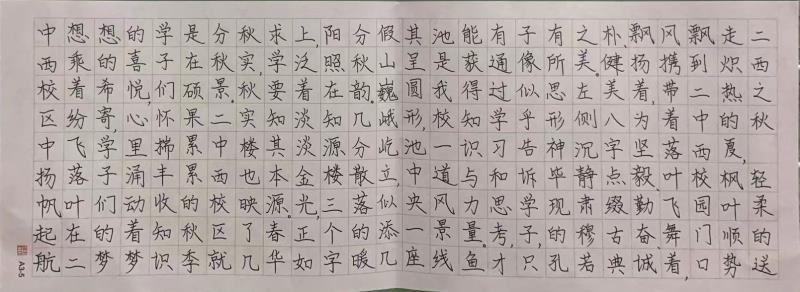 二西之秋 轻柔的送
走炽热的夏,枫叶顺势
飘到二中西校园门口
风携带着落叶飞舞着,
飘扬着,为坚毅。勤奋城
朴、健美八字点缀古典
之美。左侧沉静肃穆若
有所思形神毕现的孔
子像似乎告诉学子,只
有通过学习和思考,才
能获得知识与力量。鱼
池是我校一道风景线
其呈圆形,池中央一座
假山巍峨屹立,似添几
分秋韵。几分散落的暖
阳照在知源楼三个字
上,泛着淡淡金光,正如
求学要知其本源。春华
秋实,秋实楼也映了几
分秋景。二中西校区就
是在硕果累累的秋季
学子们怀揣丰收知识
的喜悦,心里涌动着梦
想的希寄,学子们的梦
想乘着纷飞落叶在二
中西校区中扬帆起航
A3-5